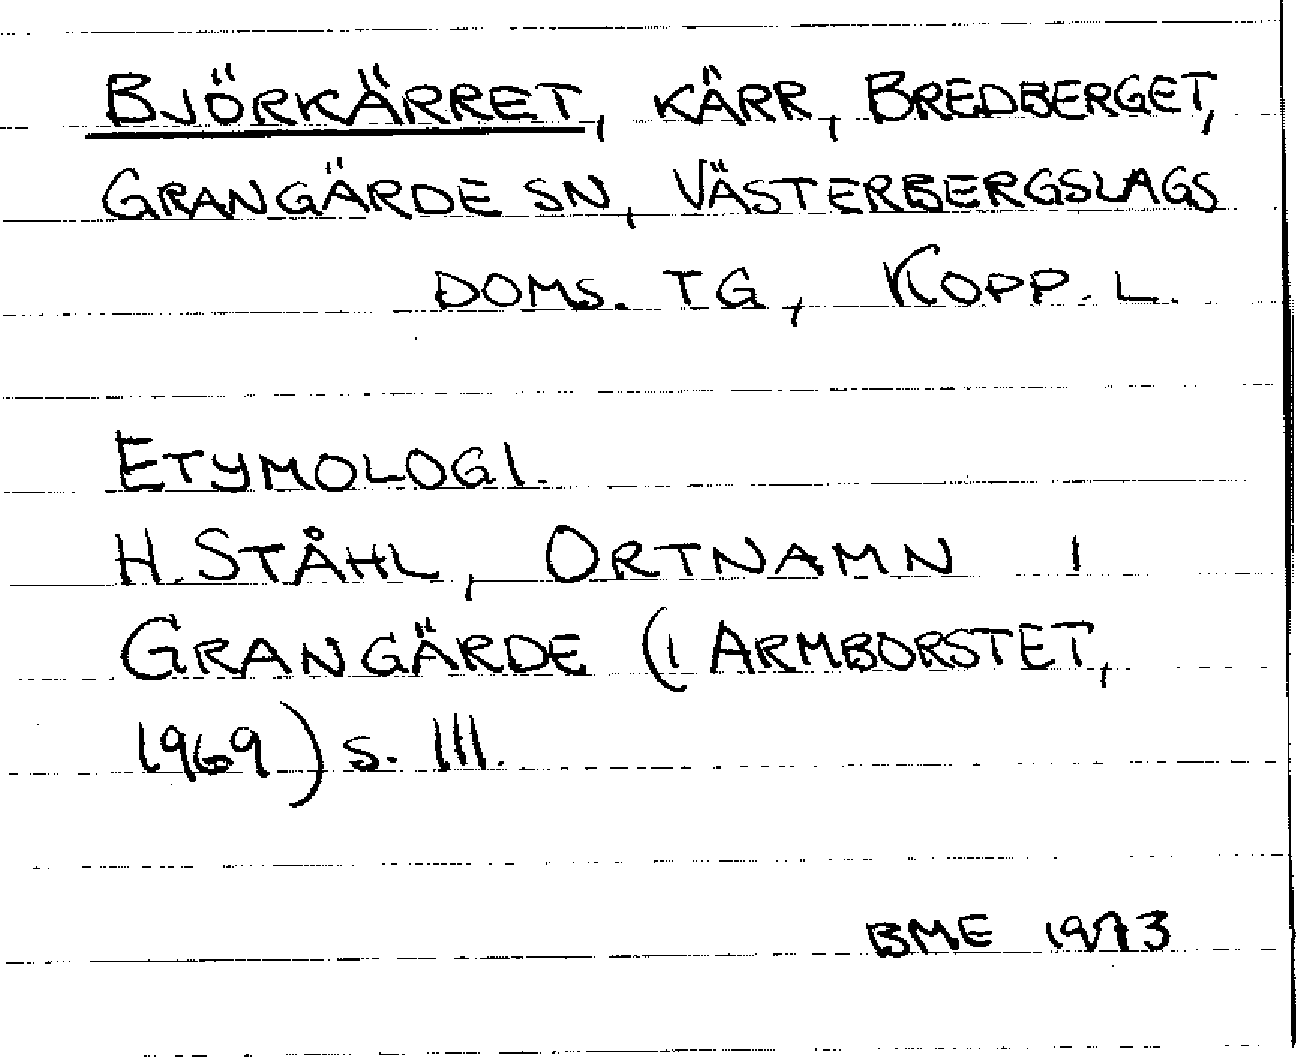 BJÖRKÄRRET, KÄRR, BREDBERGET,
GRANGÄRDE SN, VÄSTERBERGSLAGS
DOMS. TG, KOPP. L.
ETYMOLOGI.
H. STÅHL, ORTNAMN I
GRANGÄRDE (I ARMBORSTET,
1969) S. 111.
BME 1973